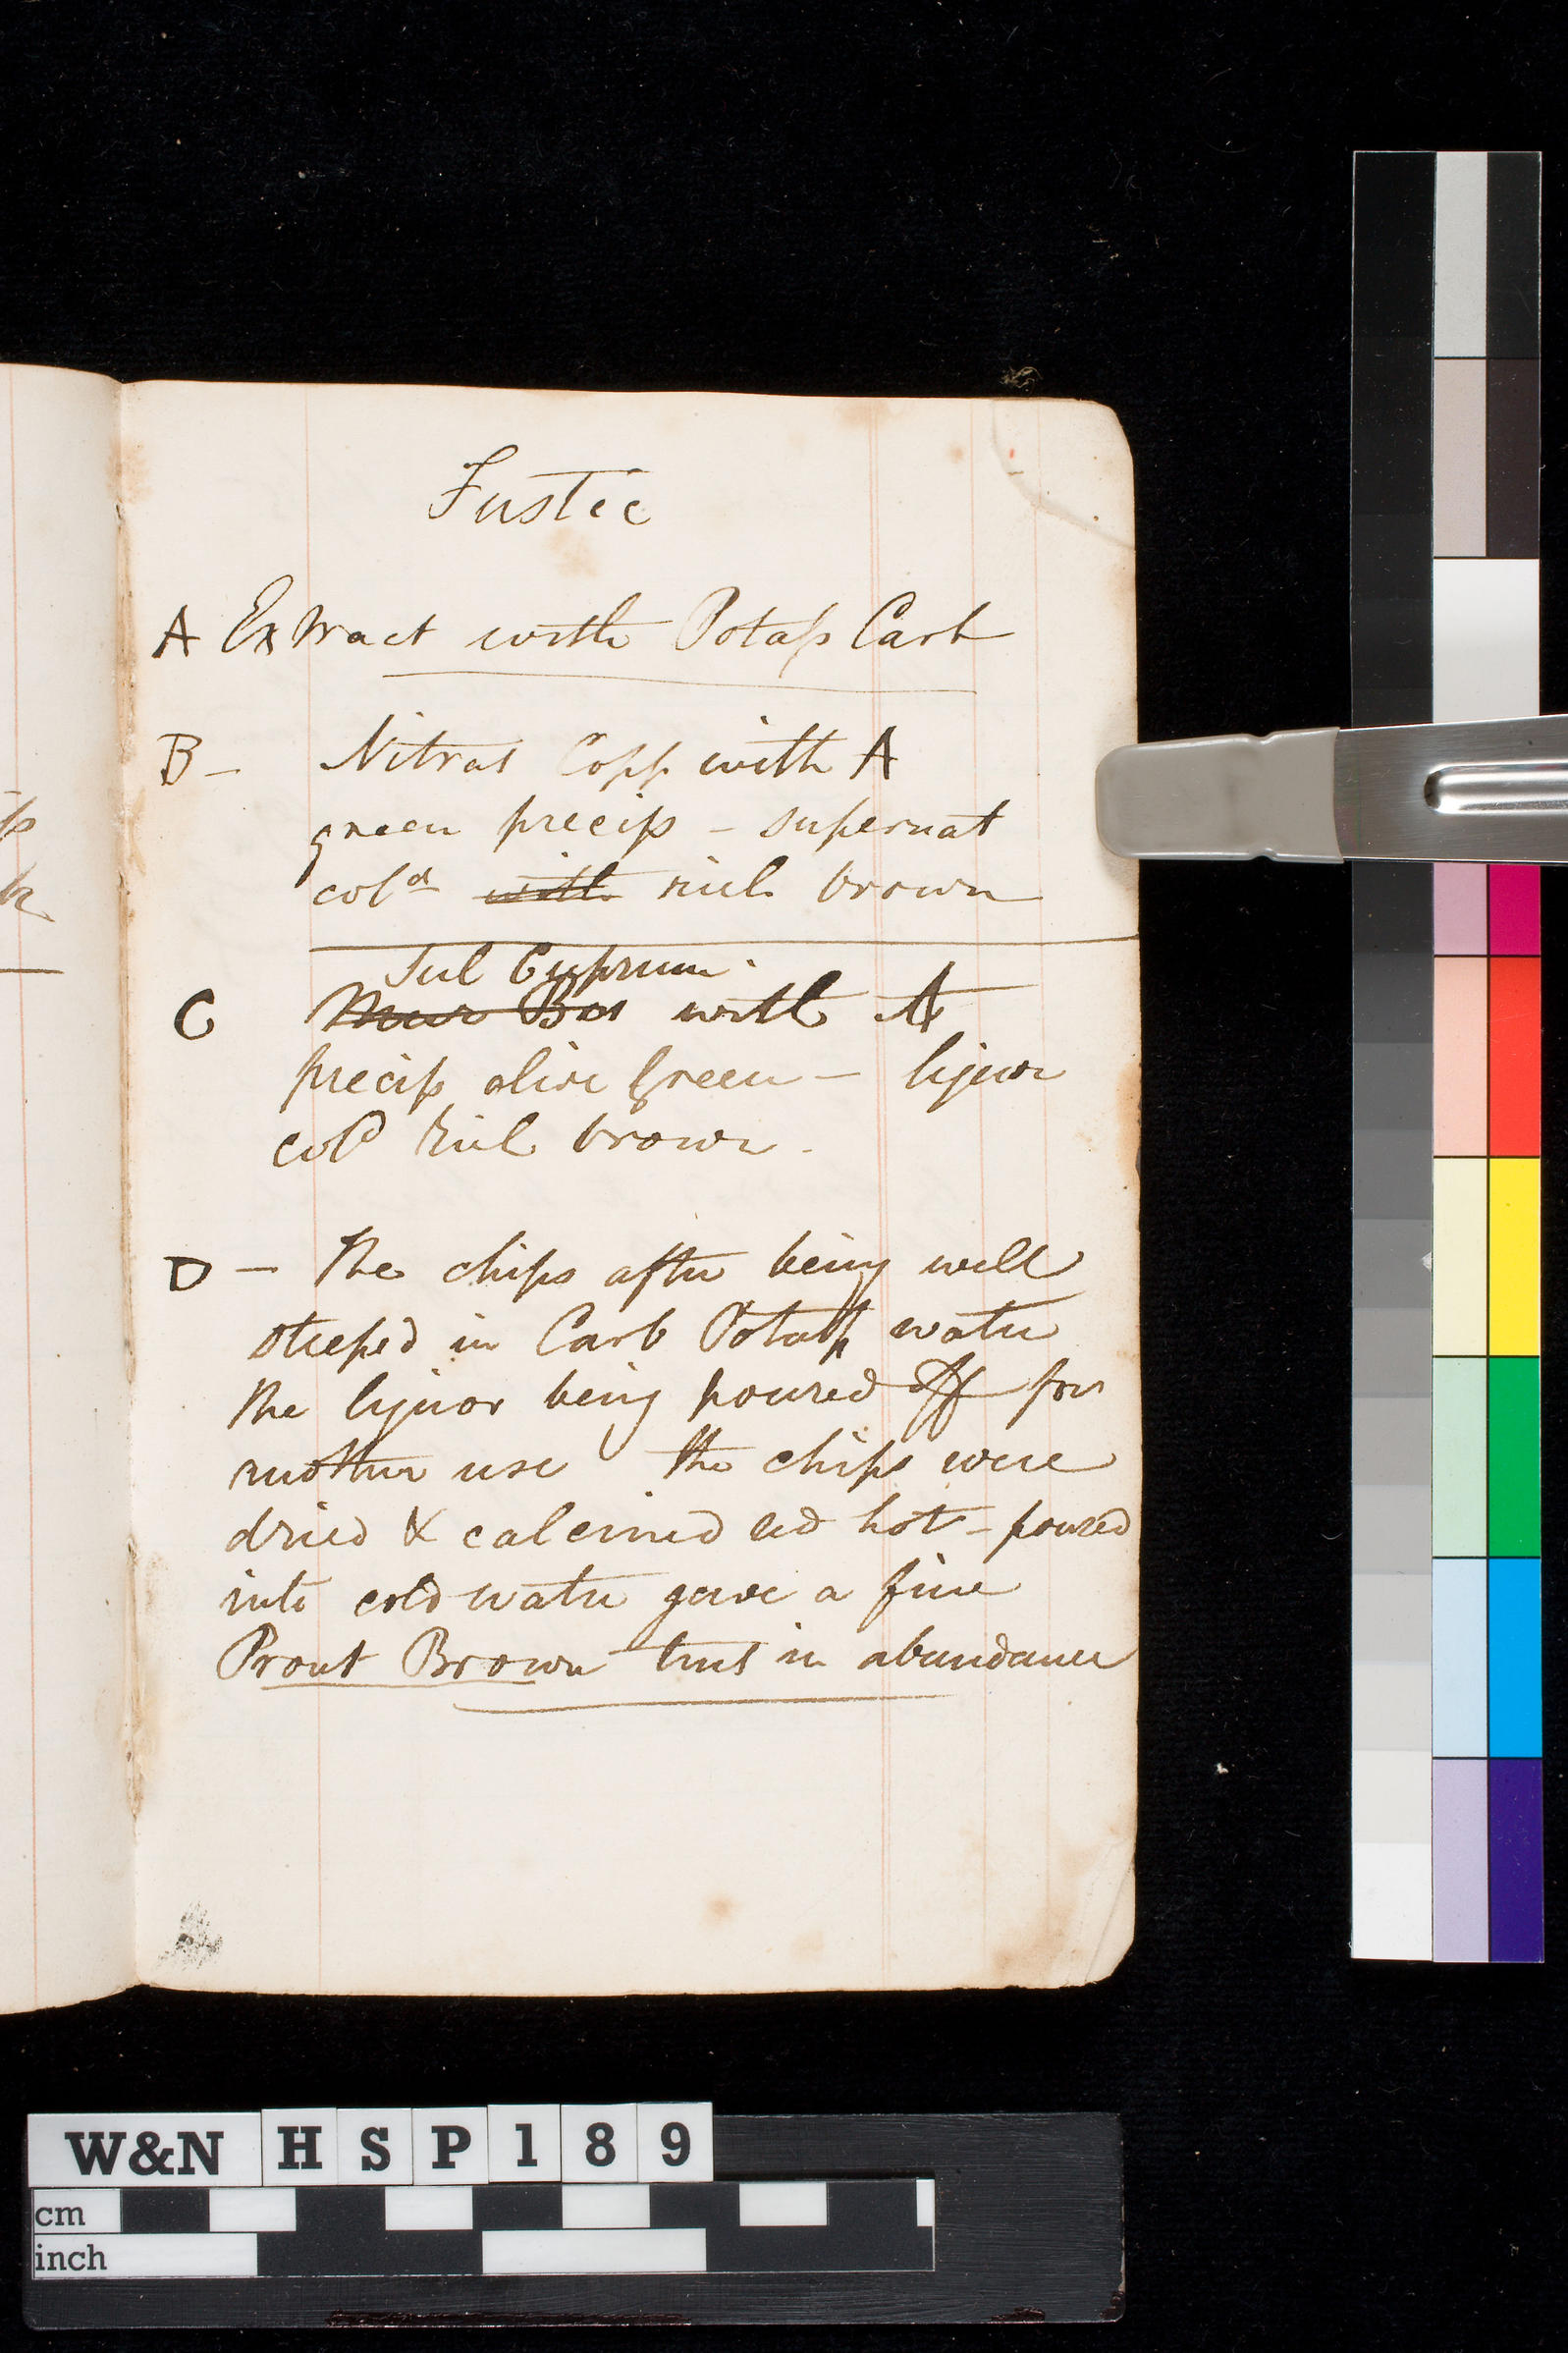 Fustic
A Extract with Potass Carb
B - Nitrat Copp with A
green precip - supernat
cold with rich brown
Sul Cuprum
C Mur Bar with A
precip olive green - liquor
cold rich brown.
D - The chips after being well
steeped in Carb Potass water
the liquor being poured off for
another use the chips were
dried & calcined red hot - poured
into cold water gave a fine
Prout Brown tint in abundance
W&N HSP189
cm
inch